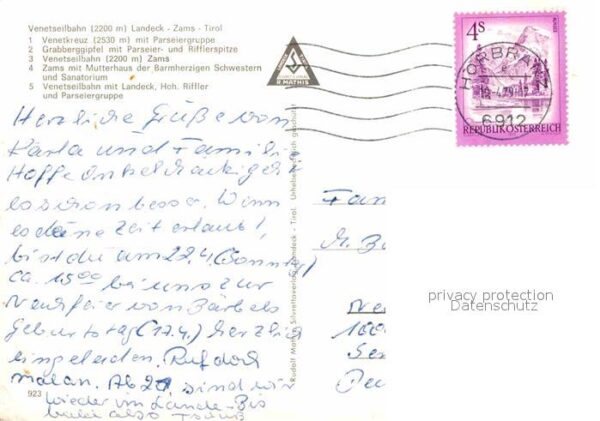 Venetseilbahn (2200 m) Landeck - Zams - Tirol
1 Venetkreuz (2530 m) mit Parseiergruppe
2 Grabberggipfel mit Parseier- und Rifflerspitze
3 Venetseilbahn (2200 m) Zams
4 Zams mit Mutterhaus der Barmherzigen Schwestern
und Sanatorium
5 Venetseilbahn mit Landeck, Hoh. Riffler
und Parseiergruppe
R MATHIS
4S
HÖRBRANZ
6912
REPUBLIK ÖSTERREICH
Herzliche Grüße von
und Familie
Hoffe
besser. Wenn
es deine Zeit erlaubt,
bist du am 22.4. (Sonntag)
ca. 15⁰⁰ bei uns zur
Nachfeier von Bärbels
Geburtstag (17.4.) herzlich
eingeladen. Ruf doch
mal an. Ab 20. sind wir
wieder im Lande - Bis
bald also Tschüß
923
Rudolf Mathis, Silvrettaverlag, Landeck - Tirol. Unbefugter geschützt
Fam
M. B
Ne
100
privacy protection
Datenschutz